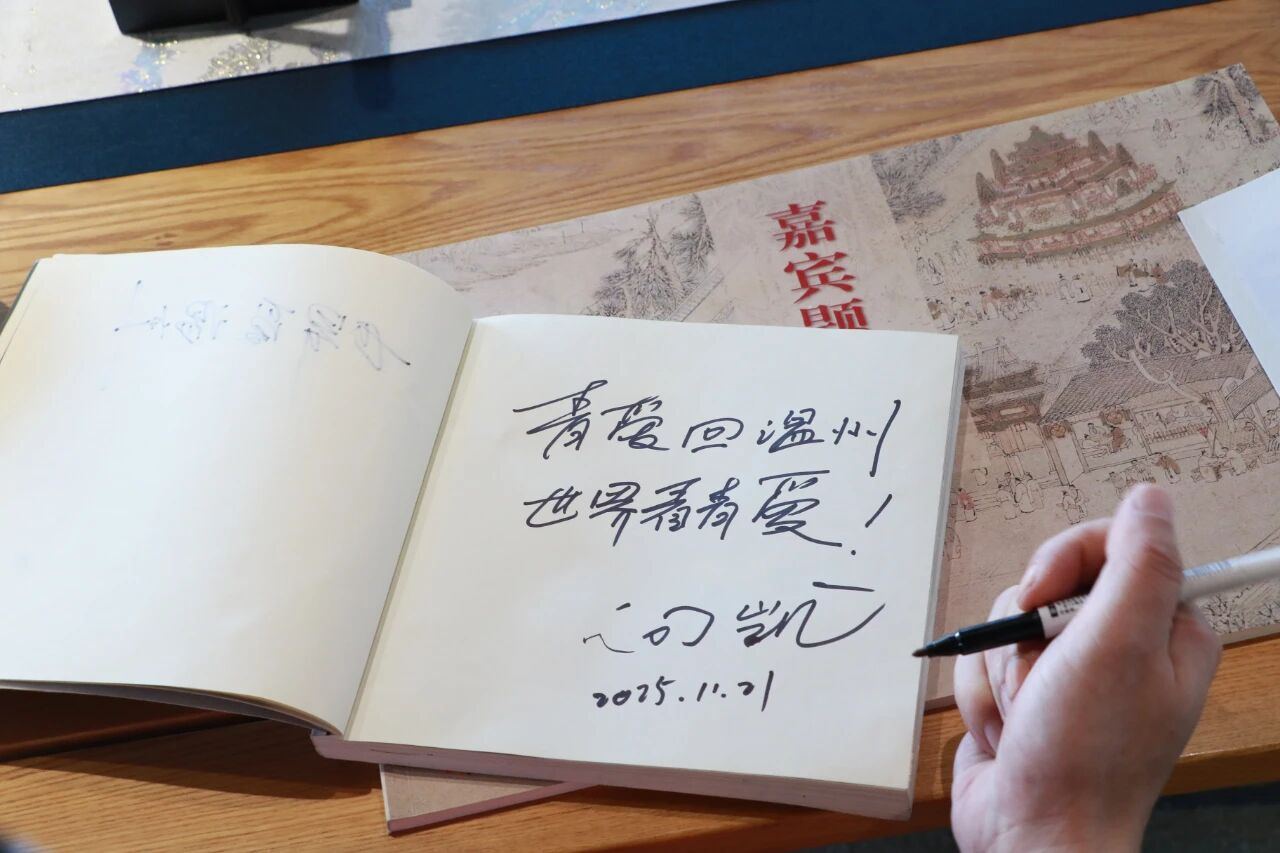 嘉宾题
青爱回温州
世界看青爱!
凯
2025.11.21